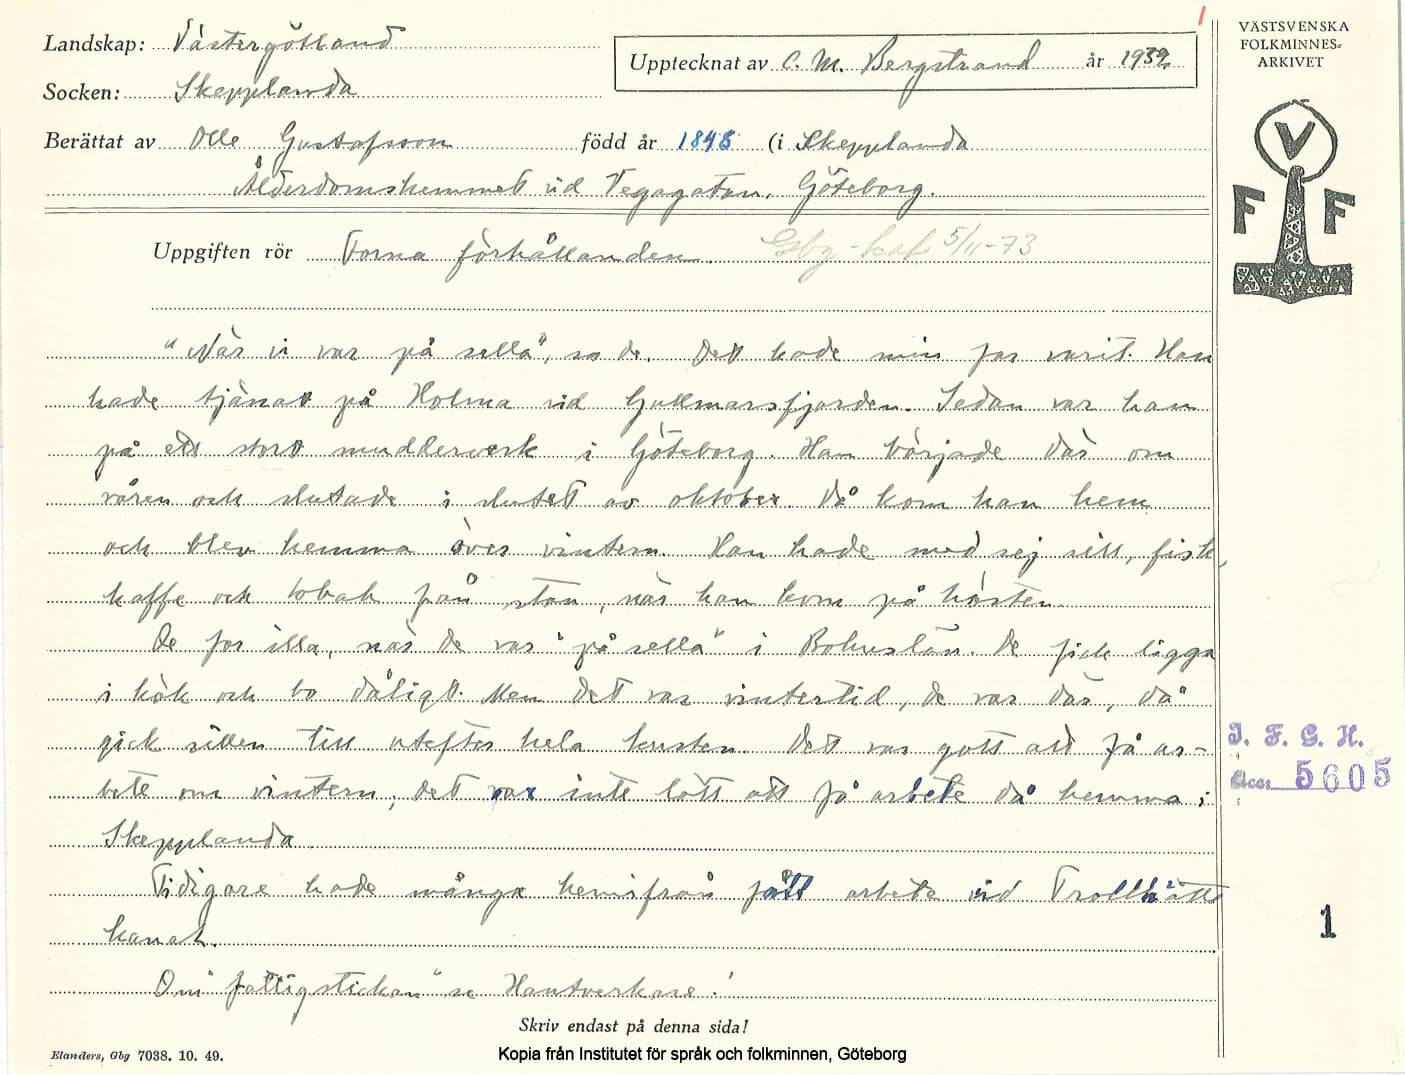 1
Landskap: Västergötland
Socken: Skepplanda
Upptecknat av C. M. Bergstrand år 1932
Berättat av Olle Gustafsson född år 1848 (i Skepplanda
Ålderdomshemmet vid Vegagatan, Göteborg.
VÄSTSVENSKA
FOLKMINNES-
ARKIVET
V
F F
Uppgiften rör Forna förhållanden. 5/11-73
"När vi var på sella", sa de. Det hade min far varit. Han
hade tjänat på Holma vid Gullmarsfjorden. Sedan var han
på ett stort mudderverk i Göteborg. Han började där om
våren och slutade i slutet av oktober. Då kom han hem
och blev hemma över vintern. Han hade med sej sill, fisk,
kaffe och tobak från stan, när han kom på hösten.
De for illa, när de var "på sella" i Bohuslän. De fick ligga
i kök och bo dåligt. Men det var vintertid, de var där, då
gick sillen till utefter hela kusten. Det var gott att få ar-
bete om vintern, det var inte lätt att få arbete då hemma i
Skepplanda.
Tidigare hade många hemifrån fått arbete vid Trollhätte
kanal.
Om "fattigstickan" se Hantverkare!
I. F. G. H.
Acc: 5605
1
Skriv endast på denna sida!
Elanders, Gbg 7038. 10. 49.
Kopia från Institutet för språk och folkminnen, Göteborg